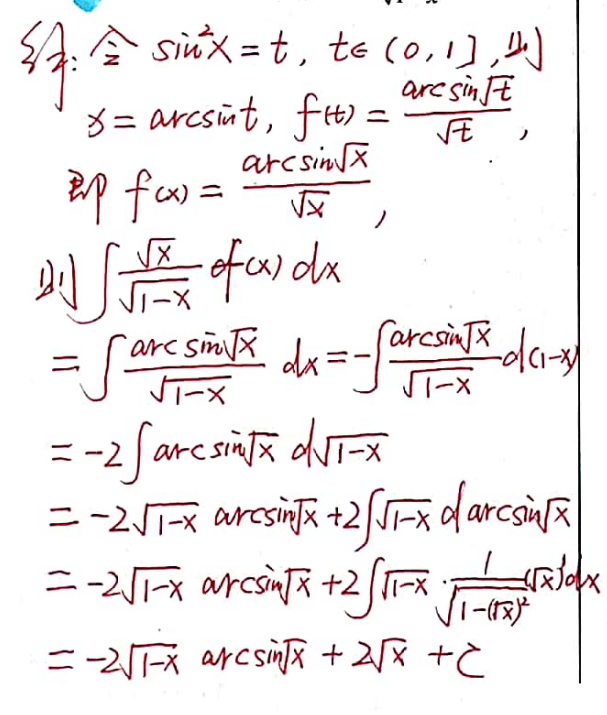 解: 令 sin²x = t, t∈(0,1], 则
x = arcsin t, f(t) = arcsin√t / √t ,
即 f(x) = arcsin√x / √x ,
则 ∫ √x / √(1-x) f(x) dx
= ∫ arcsin√x / √(1-x) dx = -∫ arcsin√x / √(1-x) d(1-x)
= -2∫ arcsin√x d√(1-x)
= -2√(1-x) arcsin√x + 2∫√(1-x) d arcsin√x
= -2√(1-x) arcsin√x + 2∫√(1-x) · 1 / √(1-(√x)²) (√x)' dx
= -2√(1-x) arcsin√x + 2√x + C